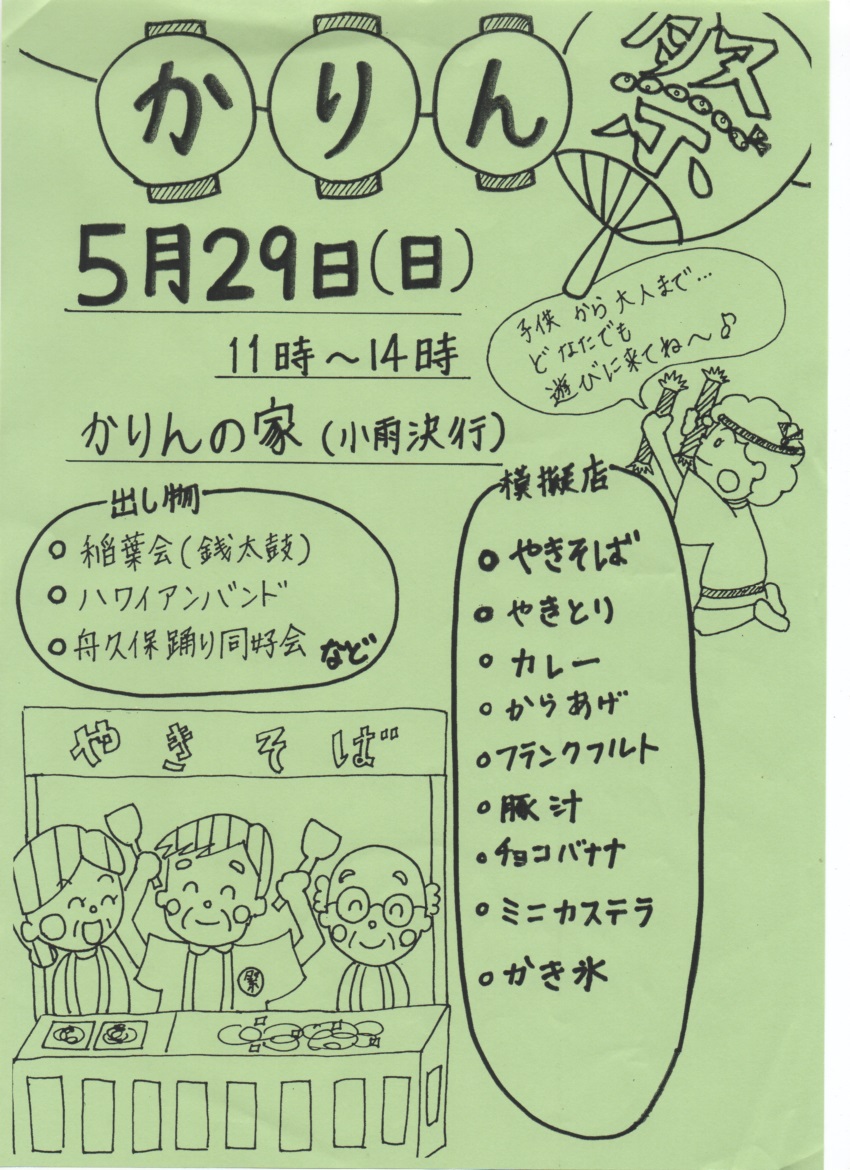 かりん祭
5月29日(日)
11時～14時
かりんの家(小雨決行)
子供から大人まで…
どなたでも
遊びに来てね～♪
出し物
○ 稲葉会(銭太鼓)
○ ハワイアンバンド
○ 舟久保踊り同好会 など
模擬店
○ やきそば
○ やきとり
○ カレー
○ からあげ
○ フランクフルト
○ 豚汁
○ チョコバナナ
○ ミニカステラ
○ かき氷
やきそば
祭